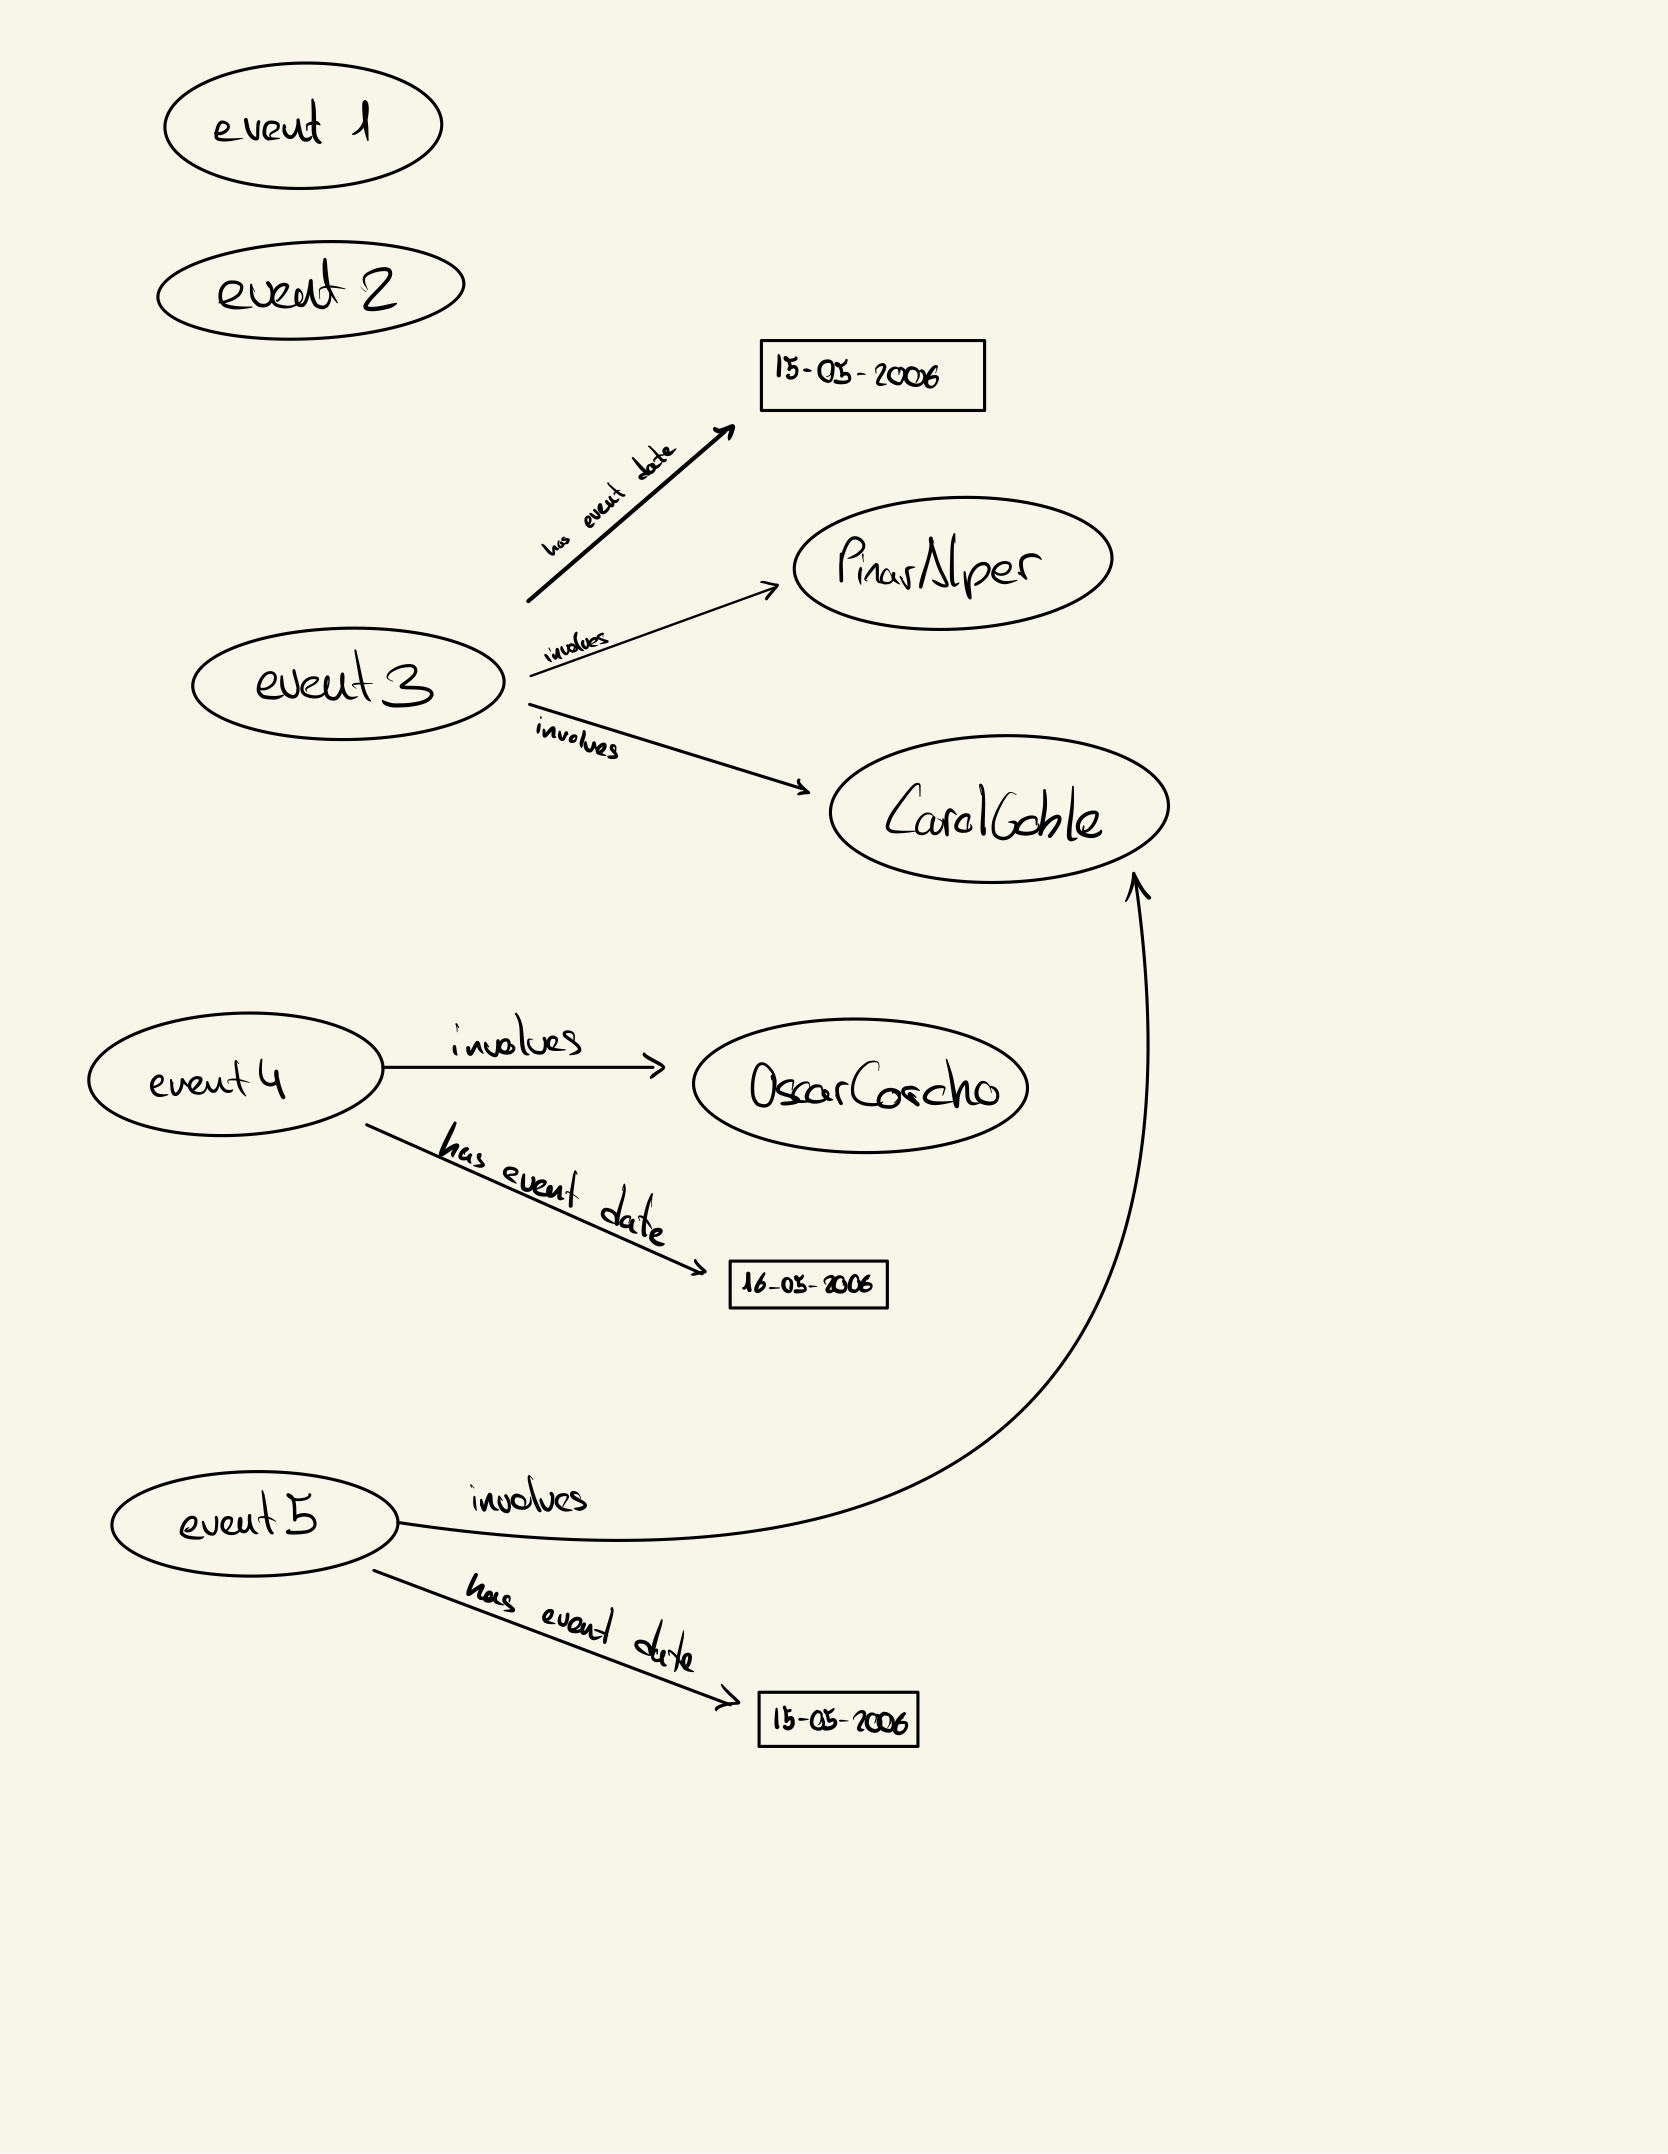 event 1
event 2
15-05-2006
has event date
PinarAlper
involves
event 3
involves
CarolGoble
involves
event 4
OscarCorcho
has event date
16-05-2006
involves
event 5
has event date
15-05-2006